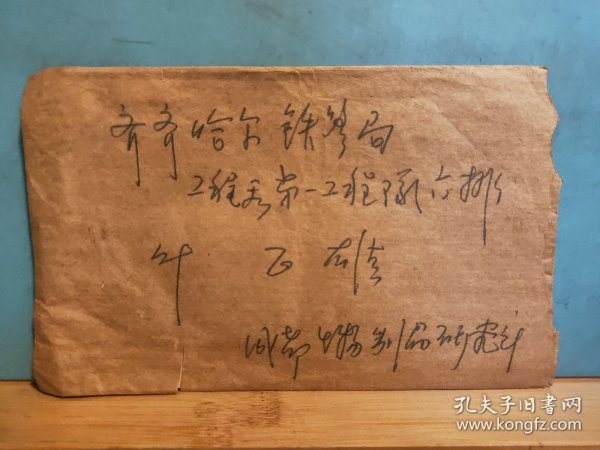 齐齐哈尔铁路局
工程处第一工程队六排
叶 正 雄
成都生物制品研究所
孔夫子旧书网
www.kongfz.com